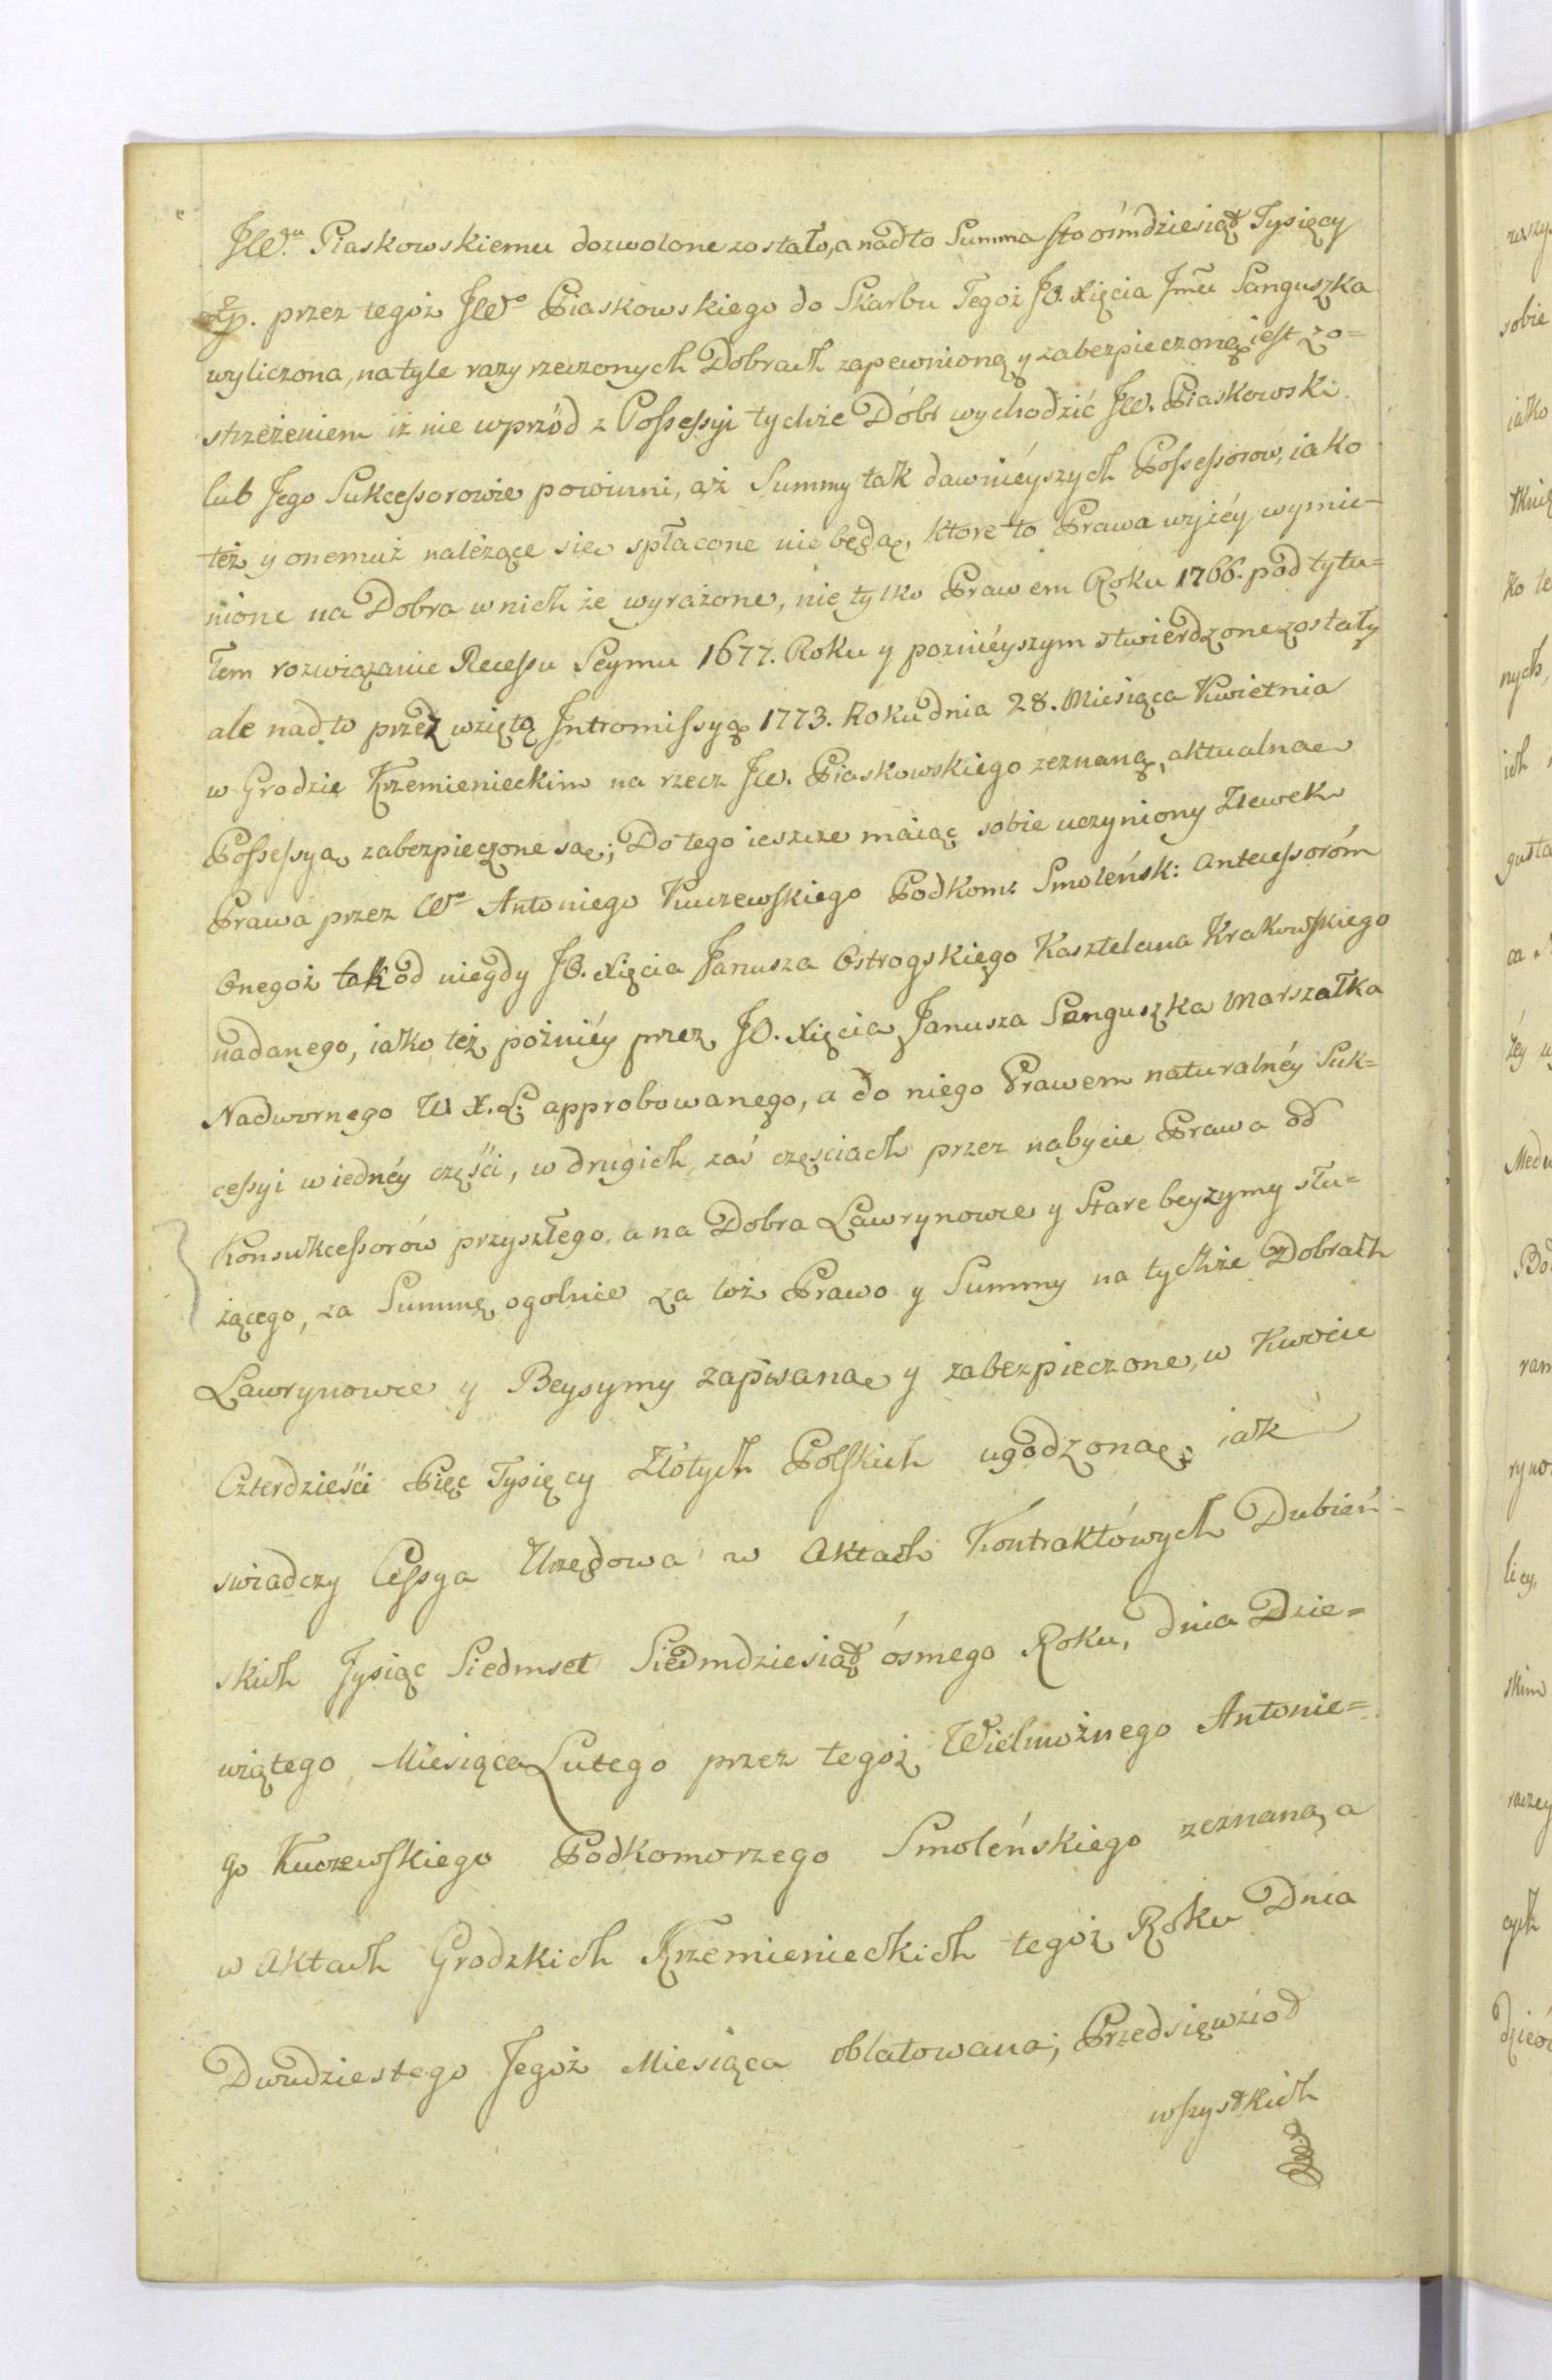 JW.mu Piaskowskiemu dozwolone zostało, a nadto Summa sto ośmdziesiąt Tysięcy
Zp. przez tegoż JWo Piaskowskiego do Skarbu Tegoż JO. Xięcia Jmci Sanguszka
wyliczona, na tyle razy rzeczonych Dobrach zapewnioną y zabezpieczoną iest zo=
strzeżeniem iż nie wprzód z Possessyi tychże Dóbr wychodzić JW. Piaskowski
lub Jego Sukcessorowie powinni, aż Summy tak dawnieyszych Possessorow, iako
też y onemuż należące się spłacone nie będą, ktore to Prawa wyżéy wymie-
nione na Dobra w nich że wyrażone, nie tylko Prawem Roku 1766. pod tytu=
łem rozwiązanie Recessu Seymu 1677. Roku y poznieyszym stwierdzone zostały
ale nadto przez wziętą Intromissyą 1773. Roku dnia 28. Miesiąca Kwietnia
w Grodzie Krzemienieckim na rzecz JW. Piaskowskiego zeznaną, aktualną
Possessyą zabezpieczone są; Do tego ieszcze maiąc sobie uczyniony Zlewek
Prawa przez Wo Antoniego Kuczewskiego Podkom: Smoleńsk: Antecessoróm
Onegoż tak od niegdy JO. Xięcia Janusza Ostrogskiego Kasztelana Krakowskiego
nadanego, iako też pożniéy przez JO. Xięcia Janusza Sanguszka Marszałka
Nadwornego W. X. L. approbowanego, a do niego Prawem naturalnéy Suk=
cessyi w iednéy części, w drugich zaś częściach przez nabycie Prawa od
Konsukcessorów przyszłego, a na Dobra Lawrynowce y Stare beyzymy słu=
żącego, za Summę ogolnie za toż Prawo y Summy na tychże Dobrach
Lawrynowce y Beysymy zapisaną y zabezpieczone, w Kwocie
Czterdzieści Pięć Tysięcy Złotych Polskich ugodzoną; iak
swiadczy Cessya Urzędowa w Aktach Kontraktówych Dubień-
skich Tysiąc Siedmset Siedmdziesiąt ósmego Roku, dnia Dzie=
wiątego Miesiąca Lutego przez tegoż Wielmożnego Antonie=
go Kuczewskiego Podkomorzego Smoleńskiego zeznana, a
w Aktach Grodzkich Krzemienieckich tegoż Roku Dnia
Dwudziestego Tegoż Miesiąca oblatowana; Przedsięwziął
wszystkich